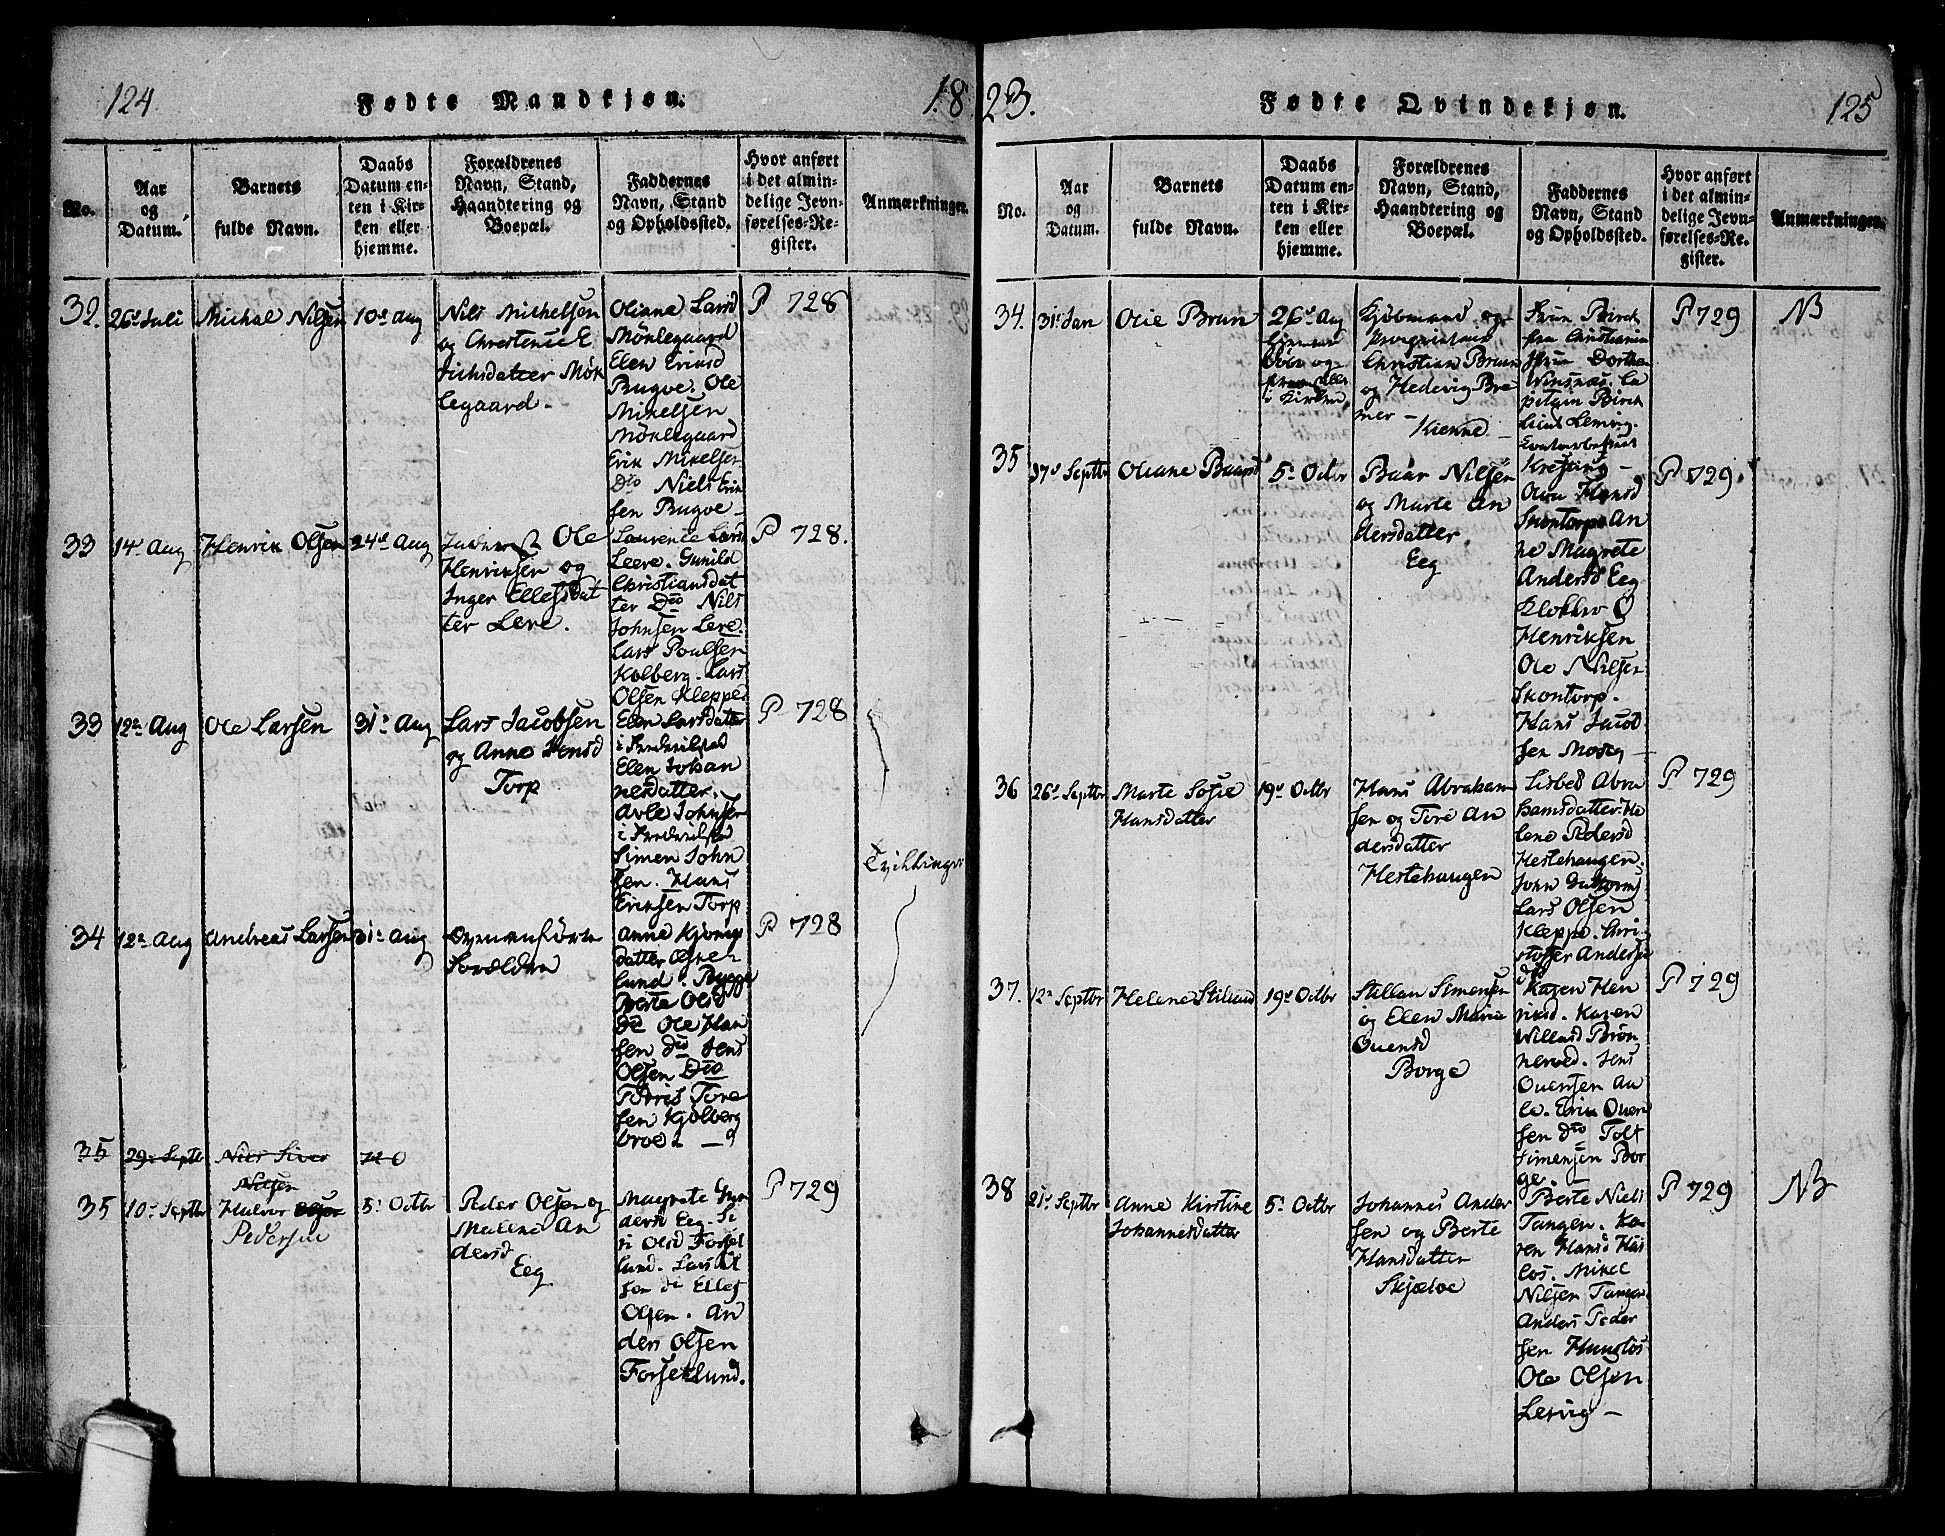 124.
Fødte Mandkjøn.
18
No.
Aar
og
Datum.
Barnets
fulde Navn.
Daabs
Datum en-
ten i Kir-
ken eller
hjemme.
Forældrenes
Navn, Stand,
Haandtering og
Boepæl.
Faddernes
Navn, Stand
og Opholdssted.
Hvor anført
i det almin-
delige Jevn-
førelses-Re-
gister.
Anmærkninger.
32.
26d Juli
Michal Nilsen
10d Aug
Nils Michelsen
og Christense E
richsdatter Møk
legaard.
Oliane Larsd
Möklegaard
Elen Eriksd
Bugve. Ole
Mikelsen
Möklegaard
Erik Mikelsen
Do Niels Erik
sen Bugve
P 728
33
14d Aug
Henrik Olsen
24d Aug
Ole
Henriksen og
Inger Ellefsdat
ter Lere.
Laurence Larsd
Leere. Gunild
Christiansdat
ter Do Nils
Johnsen Lere.
Lars Poulsen
Kolberg. Lars
Olsen Kleppe
P 728.
33
12te Aug
Ole Larsen
31d Aug
Lars Jacobsen
og Anne Jensd
Torp
Elen Larsdatter
i Frederikstad
Elen Johan
nesdatter.
Avle Johnsen
i Frederikstad
Simen John
sen. Hans
Eriksen Torp
P 728
Tvillinger
34
12te Aug
Andreas Larsen
31d Aug
Ovenanförte
Forældre
Anne
datter
lund. Bygge
Berte Olsd
do Ole Han
sen do Jens
Olsen Do
Tore
sen Kjölberg
broe
P 728
35
29d Septbr
Nils Siver
Nilsen
35
10d Septbr
Halvor Olsen
Pedersen
5d Octbr
Peder Olsen og
Malene An
dersd
Eeg
Magrete An
dersd Eeg. Si
ri Olsd Forsel
lund. Lars Ol
sen do Ellef
Olsen. An
ders Olsen
Forseklund.
P 729
23.
Fødte Qvindekjøn.
125
No.
Aar
og
Datum.
Barnets
fulde Navn.
Daabs
Datum en-
ten i Kir-
ken eller
hjemme.
Forældrenes
Navn, Stand,
Haandtering og
Boepæl.
Faddernes
Navn, Stand
og Opholdssted.
Hvor anført
i det almin-
delige Jevn-
førelses-Re-
gister.
Anmærkninger.
34.
31d Jan
Olie Brun
26d Aug
hjemme
døbt og
i Kirken
Kjøbmand og
Christian Brun
og Hedevig Bre
mer
Kienne
Frue Birch
fra Christiania
Frue Dorthea
Winsnæs. Ca
pitain Birch
Krefting
P 729
NB
35
17d Septbr
Oliane Baarsd
5d Octbr
Baar Nilsen
og Marte An
dersdatter
Eeg
Olea Hansd
Skontorp An
ne Magrete
Andersd Eeg
Klokker O
Henriksen
Ole Nilsen
Skontorp.
Hans Jacob
sen Moseg
P 729.
36
26d Septbr
Marte Sofie
Hansdatter
19d Octbr
Hans Abraham
sen og Tore An
dersdatter
Hestehaugen
Lisbed Abra
hamsdatter. He
lene Pedersd
Hestehaugen.
John Guttorms
Lars Olsen
Kleppe. Chri
stoffer Andersen
do
P 729
37.
12te Septbr
Helene Stiland
19d Octbr
Stillau Simensen
og Elen Marie
Ouensd
Borge
Karen Hen
riksd. Karen
Willumsd Brön
neröd. Jens
Ouensen Au
le. Erik Ouen
sen do Tolf
Simensen Bor
ge.
P 729
38
21d Septbr
Anne Kirstine
Johannesdatter
5d Octbr
Johannes Ander
sen og Berte
Hansdatter
Skjæloe
Berte Niels
Tangen. Ka
ren Hansd Huns
los. Mikel
Nilsen Tangen.
Anders Peder
sen Hunslos
Ole Olsen
Lervig
P 729
NB